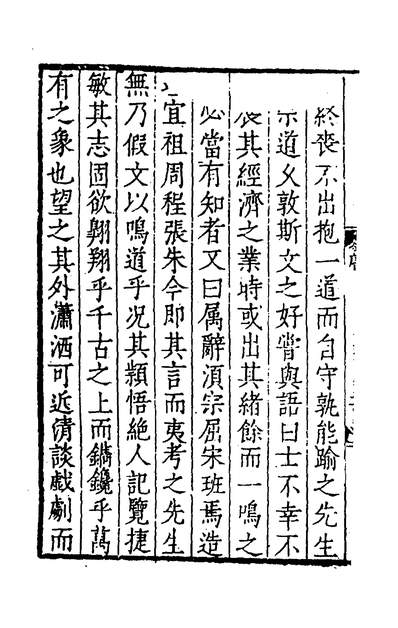 終喪不出抱一道而自守孰能踰之先生
宗道乂敦斯文之好嘗與語曰士不幸不
後其經濟之業時或出其緒餘而一鳴之
必當有知者又曰属辭湏宗屈宋班馬造
宜祖周程張朱今即其言而夷考之先生
無乃假文以鳴道乎况其頴悟絶人記覽捷
敏其志固欲翺翔乎千古之上而鐫鑱乎萬
有之象也望之其外瀟洒可近清談戯劇而